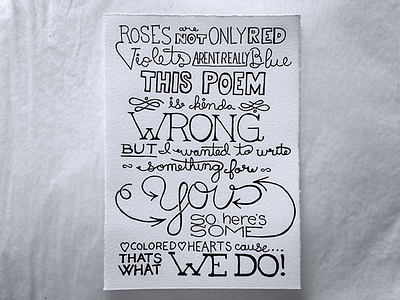 ROSES are NOT ONLY RED
Violets AREN'T REALLY Blue
THIS POEM
is kinda
WRONG
BUT I wanted to write
something for
You
so here's
SOME
COLORED HEARTS cause...
THATS
WHAT WE DO!